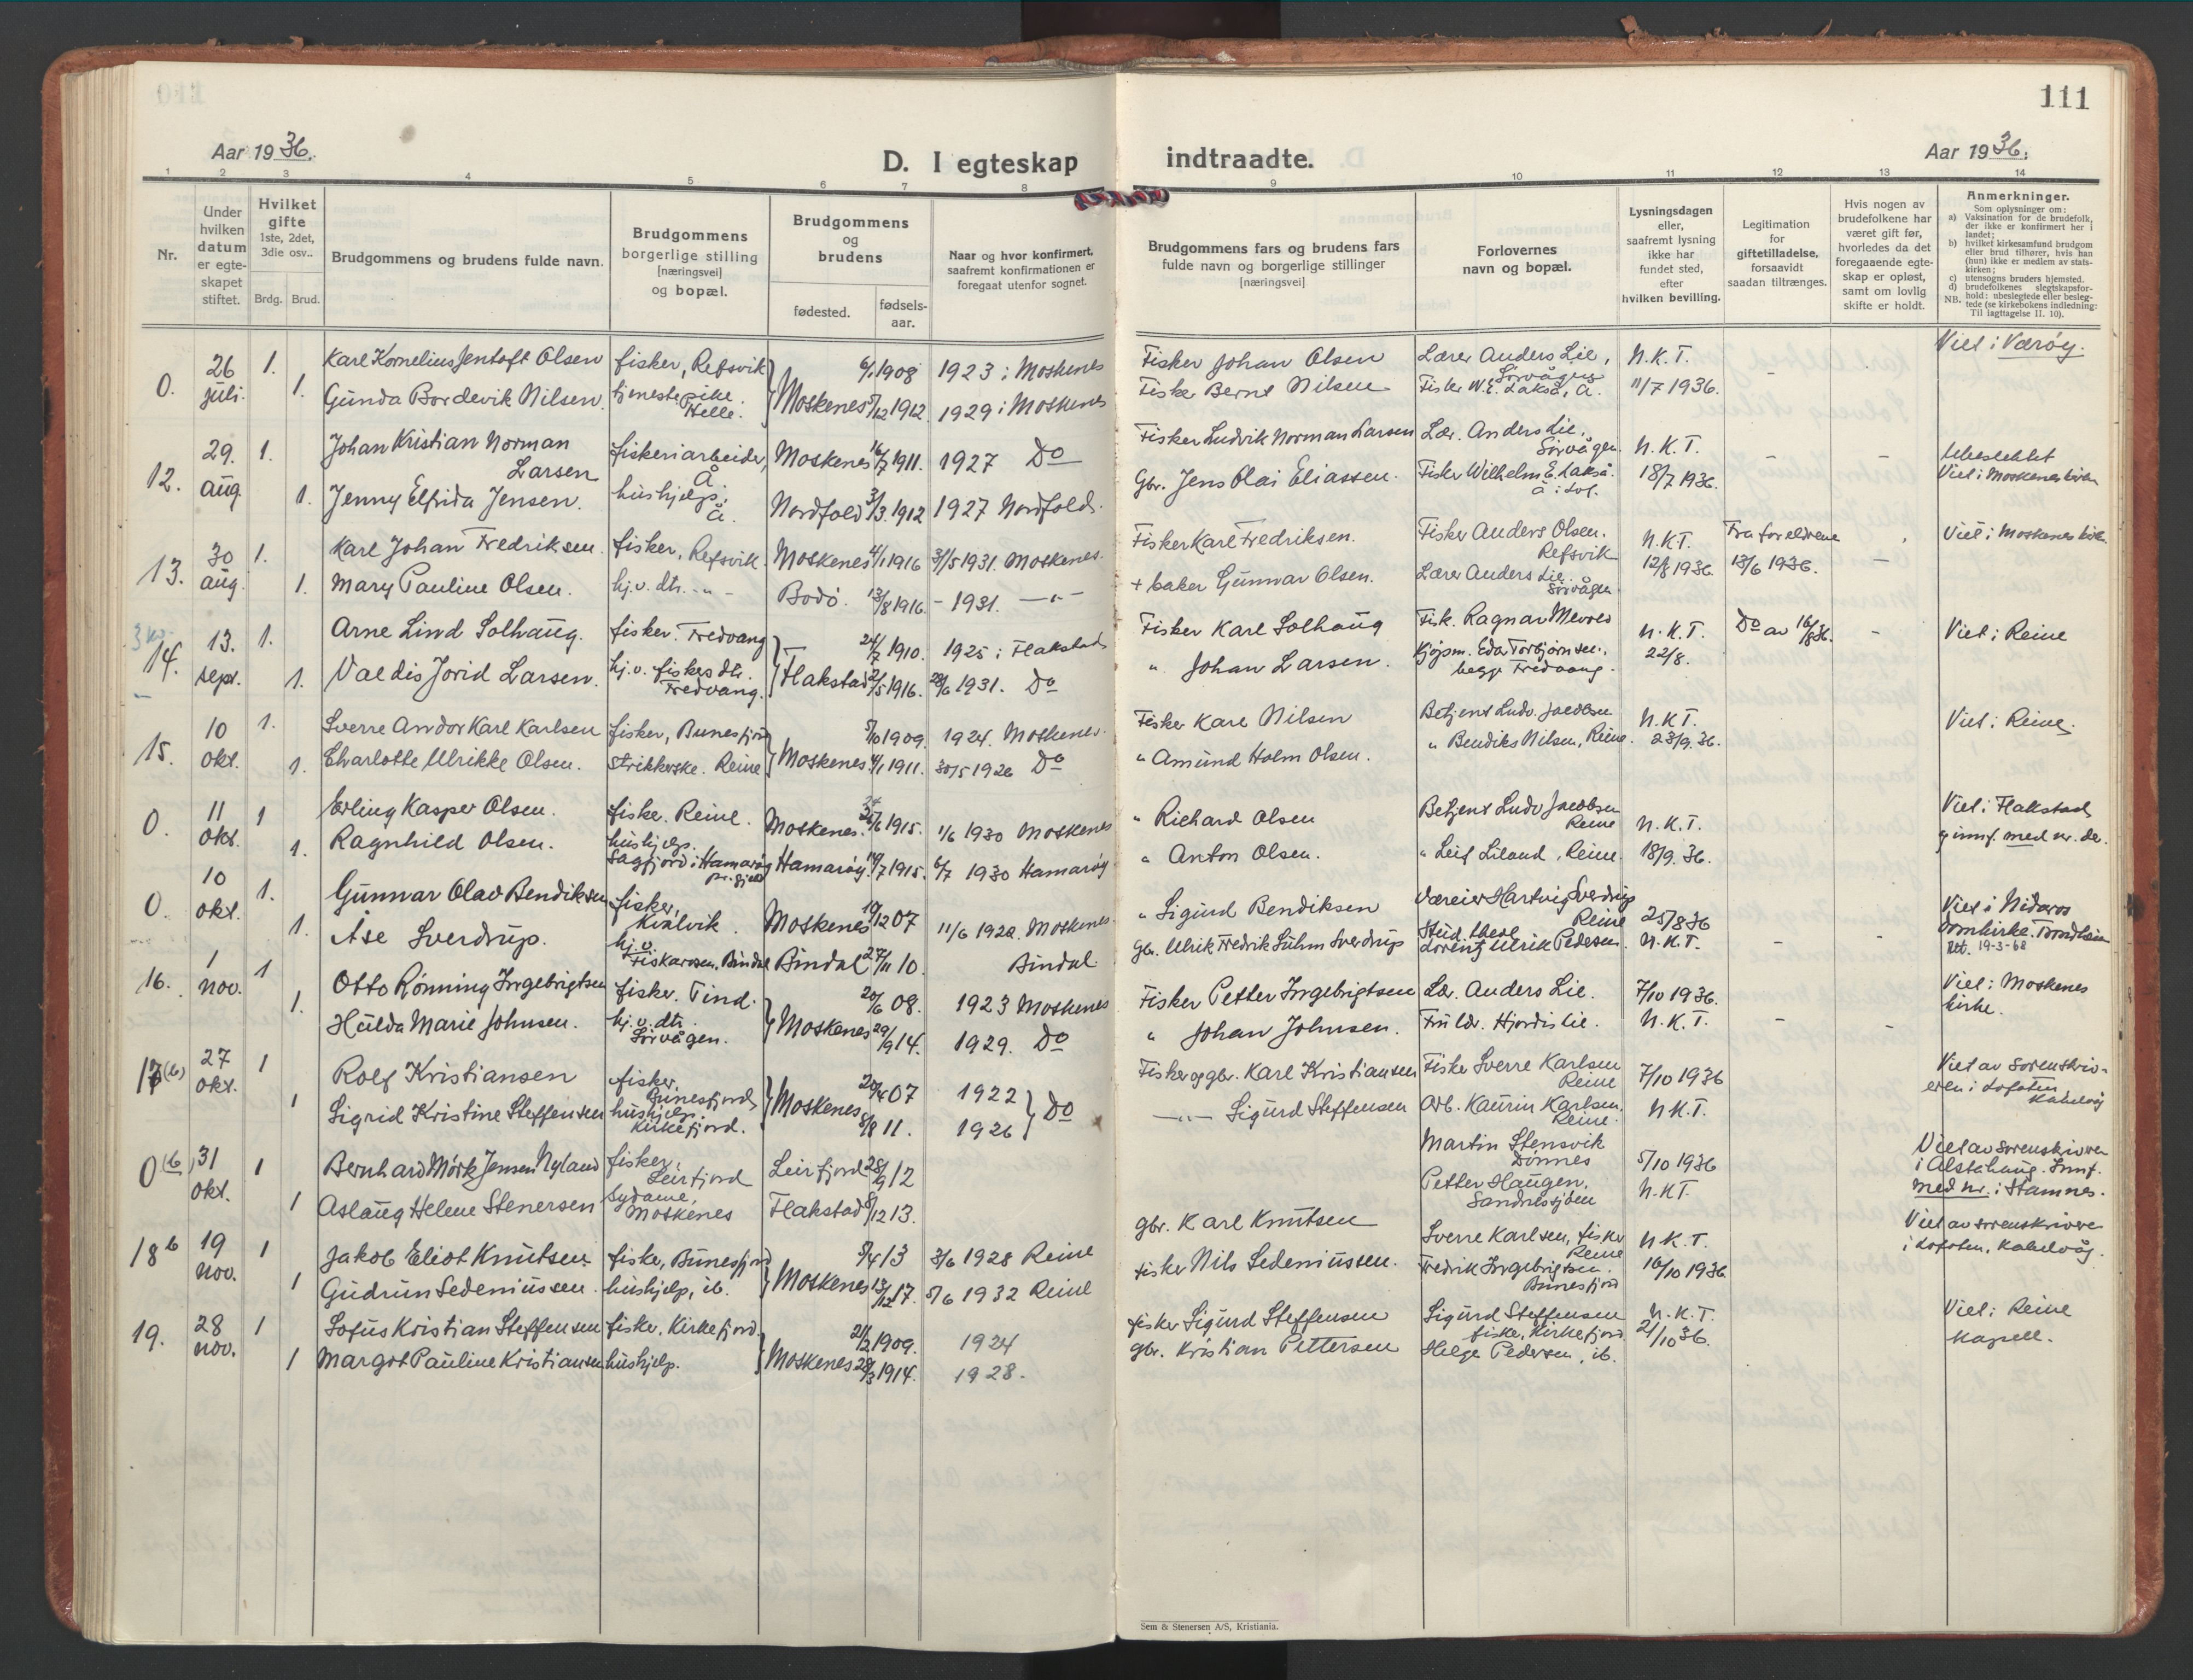 111
Aar 1936.
D. I egteskap indtraadte.
Aar 1936.
1 2 3 4 5 6 7 8 9 10 11 12 13 14
Nr.
Under hvilken datum er egte-skapet stiftet.
Hvilket gifte
1ste, 2det, 3die osv..
Brdg. Brud.
Brudgommens og brudens fulde navn.
Brudgommens borgerlige stilling [næringsvei] og bopæl.
Brudgommens og brudens
fødested.
fødsels-aar.
Naar og hvor konfirmert, saafremt konfirmationen er foregaat utenfor sognet.
Brudgommens fars og brudens fars fulde navn og borgerlige stillinger [næringsvei]
Forlovernes navn og bopæl.
Lysningsdagen eller, saafremt lysning ikke har fundet sted, efter hvilken bevilling.
Legitimation for giftetilladelse, forsaavidt saadan tiltrænges.
Hvis nogen av brudefolkene har været gift før, hvorledes da det foregaaende egte-skap er opløst, samt om lovlig skifte er holdt.
Anmerkninger.
Som oplysninger om:
a) Vaksination for de brudefolk, der ikke er konfirmert her i landet;
b) hvilket kirkesamfund brudgom eller brud tilhører, hvis han (hun) ikke er medlem av stats-kirken;
c) utensogns bruders hjemsted.
d) brudefolkenes slegtskapsfor-hold: ubeslegtede eller besleg-tede (se kirkebokens indledning: Til Iagttagelse II. 10).
NB.
0. 26 juli. 1. Karl Kornelius Jentoft Olsen fisker, Refsvik 6/1 1908 1923 i Moskenes Fisker Johan Olsen Lærer Anders Lie, Sörvågen N.K.T. Viet i Værøy.
1. Gunda Bordevik Nilsen. tjenestepike. Helle. Moskenes 5/12 1912 1929 i Moskenes Fisker Bernt Nilsen Fisker W.E. Lakså, Å. 11/7 1936.
12. 29. aug. 1. Johan Kristian Norman Larsen fiskeriarbeider, Å. Moskenes 16/7 1911. 1927 Do Fisker Ludvik Norman Larsen Lær. Anders Lie, Sörvågen. N.K.T. Ubeslektet
1. Jenny Elfrida Jensen. hushjelp, Å. Nordfold 3/3. 1912 1927 Nordfold. Gbr. Jens Olai Eliassen. Fisker Wilhelm E. Lakså. Å i Lof. 18/7 1936. Viet i Moskenes kirke
13. 30 aug. 1. Karl Johan Fredriksen. fisker, Refsvik. Moskenes 4/1 1916 31/5 1931. Moskenes. Fisker Karl Fredriksen. Fisker Anders Olsen. Refsvik N.K.T. Fra foreldrene Viet i Moskenes kirke.
1. Mary Pauline Olsen. hj.v. dtr. -"- Bodö. 13/8 1916. - 1931. -"- + baker Gunnar Olsen. Lærer Anders Lie. Sörvågen 12/8 1936. 13/6 1936.
14. 13. sept. 1. Arne Lind Solhaug. fisker. Fredvang 24/7 1910. 1925 i Flakstad Fisker Karl Solhaug Fisk. Ragnar Mevres N.K.T. Do av 16/8 36. Viet i Reine
1. Valdis Jorid Larsen. hj.v. fiskers dtr. Fredvang. Flakstad 2/5 1916. 28/6 1931. Do " Johan Larsen. Kjöpm. Eda Torbjörnsen. begge Fredvang. 22/8.
15. 10 okt. 1. Sverre Andor Karl Karlsen fisker, Bunesfjord 5/10 1909. 1924. Moskenes. Fisker Karl Nilsen Betjent Ludv. Jacobsen N.K.T. Viet i Reine.
1. Charlotte Ulrikke Olsen. Strikkerske. Reine Moskenes 4/1 1911. 30/5 1926 Do " Amund Holm Olsen. " Bendiks Nilsen, Reine. 23/9. 36.
0. 11 okt. 1 Erling Kasper Olsen. fisker. Reine. Moskenes. 1915. 1/6 1930 Moskenes " Richard Olsen Betjent Ludv Jacobsen Reine N.K.T. Viet i Flakstad
1. Ragnhild Olsen. hushjelp. Sagfjord i Hamarøy pr. gjeld Hamarøy. 19/7 1915. 6/7 1930 Hamarøy " Anton Olsen. " Leif Liland, Reine. 18/9. 36. g innf. med nr. der.
0. 10 okt. 1. Gunnar Olav Bendiksen fisker, Kvalvik. Moskenes 19/12 07 11/6 1922. Moskenes. " Sigurd Bendiksen Væreier Hartvig Sverdrup Reine 25/8 36 Viet i Nidaros
1. Åse Sverdrup. hj.v. Fiskarosen, Bindal Bindal 27/11 10. Bindal. gb. Ulrik Fredrik Suhm Sverdrup Stud. theol. Lorentz Ulrik Pedersen N.K.T. Domkirke. Trondheim Utt. 19-3-68
16. 1 nov. 1 Otto Rönning Ingebrigtsen fisker. Tind. 20/6 08. 1923 Moskenes Fisker Petter Ingebrigtsen Lær. Anders Lie. 7/10 1936. Viet i Moskenes
1. Hulda Marie Johnsen. hj.v. dtr. Sörvågen. Moskenes 29/9 14. 1929. Do " Johan Johnsen. Fru lær. Hjordis Lie. N.K.T. kirke.
17 (b) 27 okt. 1 Rolf Kristiansen fisker. Bunesfjord 20/4 07 1922 Fisker og gbr. Karl Kristiansen Fisker Sverre Karlsen Reine 7/10 1936 Viet av Sorenskriv-
1 Sigrid Kristine Steffensen hushjelp. Kirkefjord. Moskenes 5/8 11. 1926 Do -"- Sigurd Steffensen Arb. Kaurin Karlsen. Reine. N.K.T. eren i Lofoten Kabelvåg
0 (b) 31 okt. 1 Bernhard Mörk Jensen Nyland fisker, Leirfjord Leirfjord 28/9 12 Martin Stensvik Dönnes 5/10 1936 Viet av Sorenskriveren
1 Aslaug Helene Stenersen Sydame, Moskenes Flakstad 8/12 13. Petter Haugen, Sandnessjöen N.K.T. i Alstahaug. Innf. med nr. i Stamnes.
18 b 19 nov. 1 Jakob Eliot Knutsen. fisker, Bunesfjord 5/4 13 3/6 1928 Reine gbr. Karl Knutsen Sverre Karlsen, fisker Reine N.K.T. Viet av sorenskrivere
1 Gudrun Sedeniussen. hushjelp, ib. Moskenes 13/12 17. 5/6 1932 Reine fisker Nils Sedeniussen. Fredrik Ingebrigtsen. Bunesfjord 16/10 1936 i Lofoten, Kabelvåg.
19. 28 nov. 1 Sofus Kristian Steffensen fisker, Kirkefjord. 21/2 1909. 1924 fisker Sigurd Steffensen Sigurd Steffensen fisker, Kirkefjord N.K.T. Viet i Reine
1 Margot Pauline Kristiansen hushjelp. Moskenes 28/3 1914. 1928. gbr. Kristian Pettersen Helge Pedersen, ib. 21/10 36. Kapell.
Sem & Stenersen A/S, Kristiania.